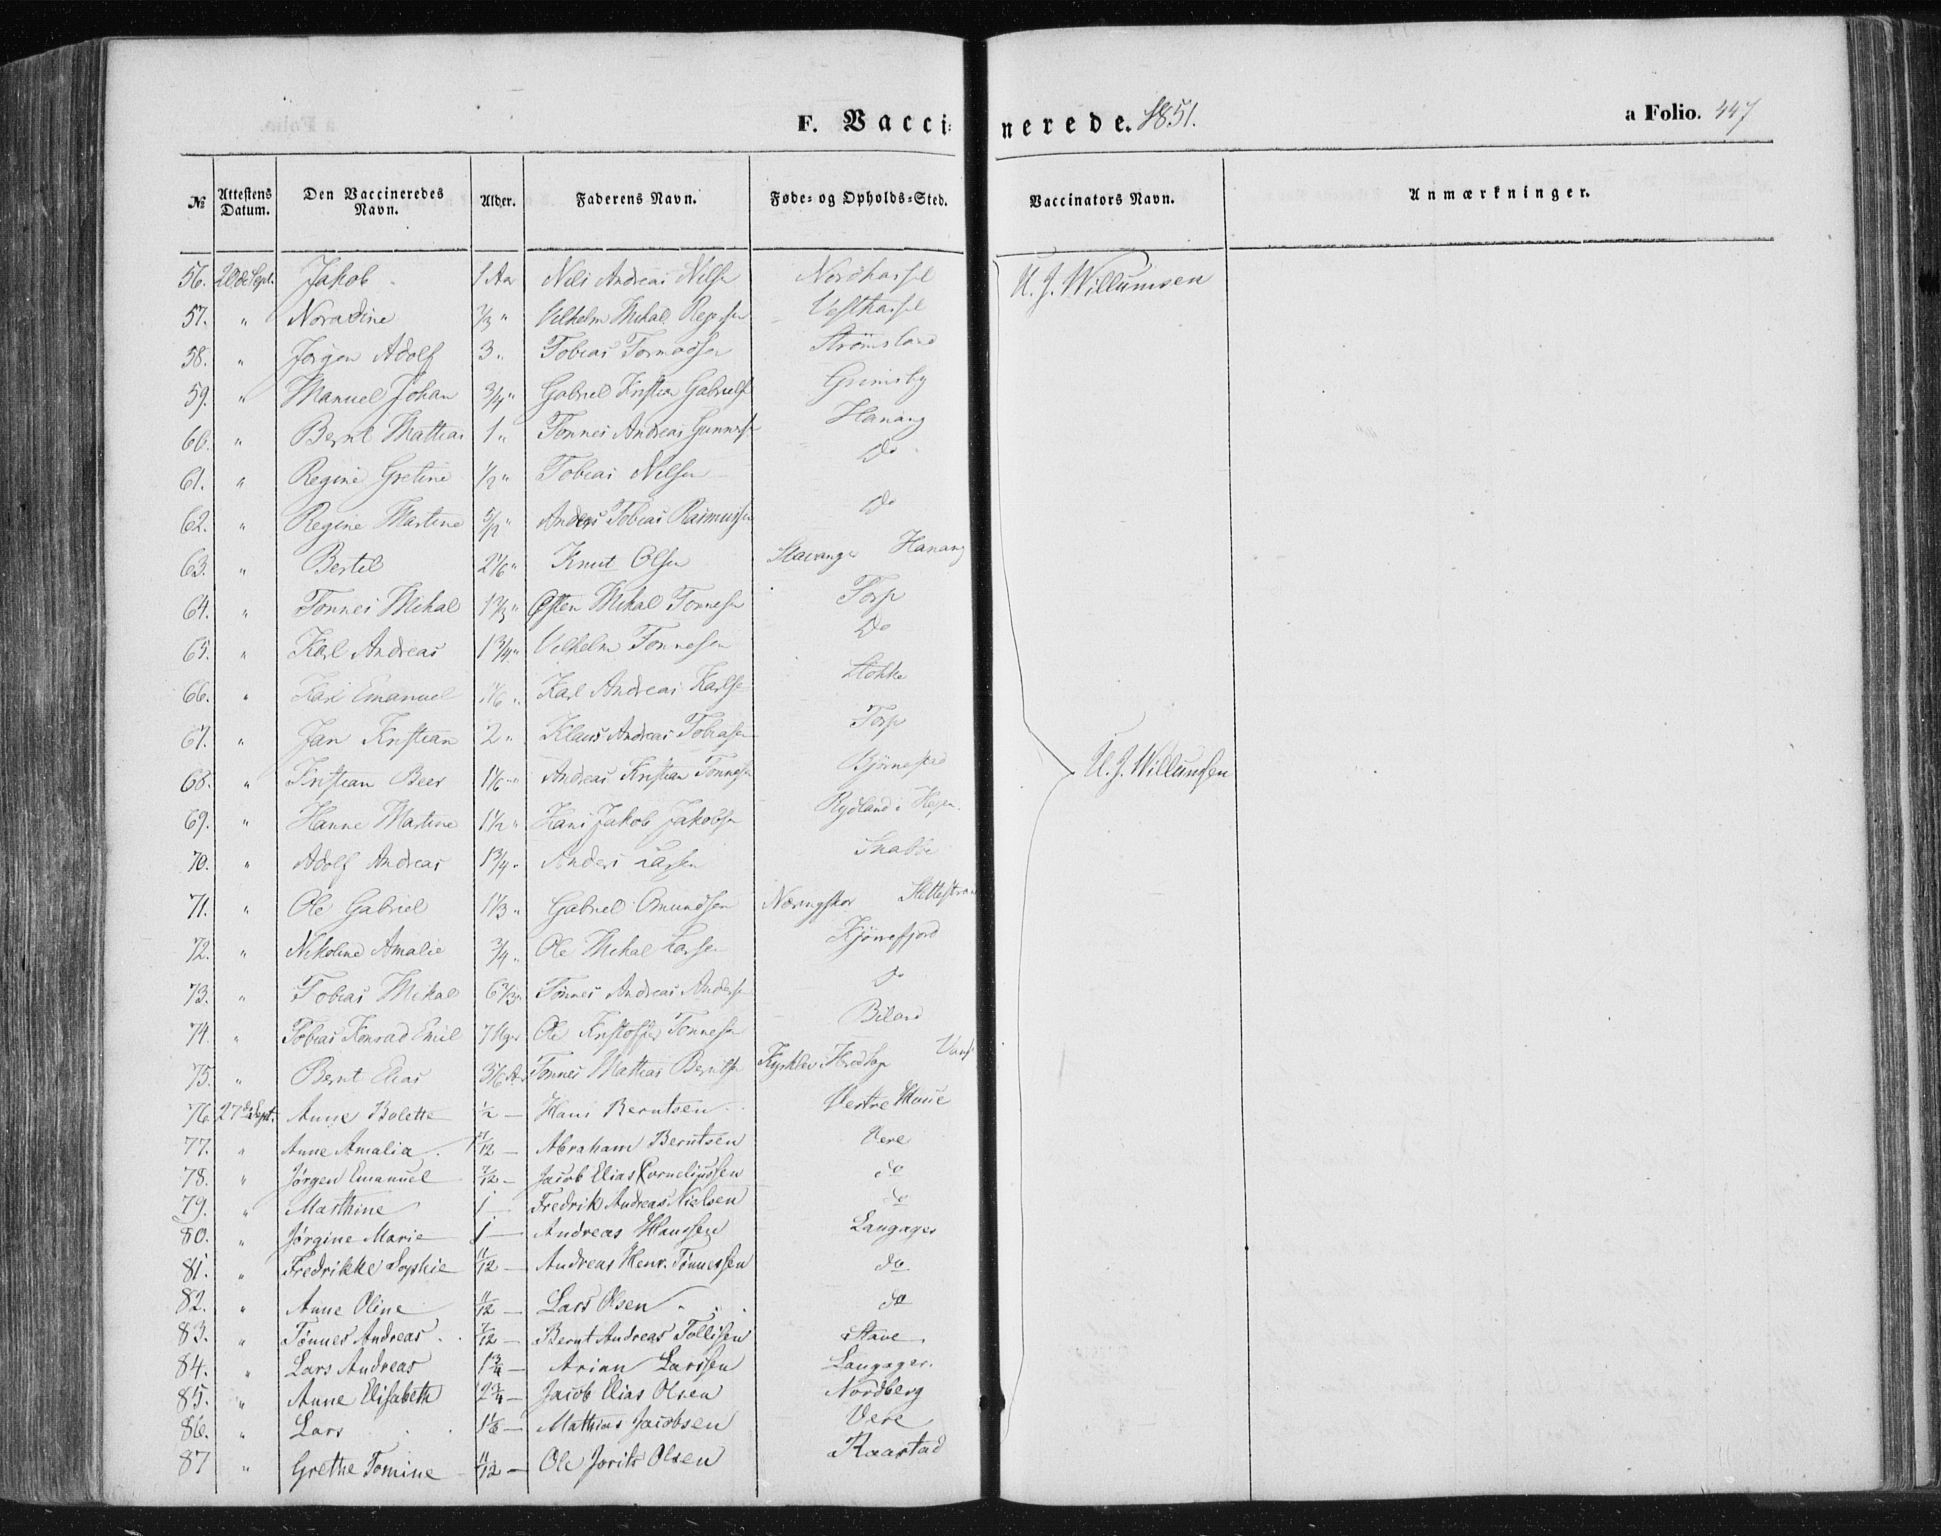 F. Vaccinerede. 1851.
a Folio. 447
№ | Attestens Datum. | Den Vaccineredes Navn. | Alder. | Faderens Navn. | Føde- og Opholds-Sted. | Vaccinators Navn. | Anmærkninger.
56. 20de Sept. Jakob 1 Aar Nils Andreas Nilsen Nordhassel U. J. Willumsen
57. " Noradine " Vilhelm Mikal Vesthassel
58. " Jørgen Adolf 3 " Tobias Strømsland
59. " Manuel Johan 3/4 " Gabriel Kristian Gabriels Grimsby
60. " Bernt Mattias 1 " Tønnes Andreas Gunners Hanang
61. " Regine Gretine 1/2 " Tobias Nilsen Do
62. " Regine Martine " Anders Tobias Rasmussen Do
63. " Bertel 2 1/6 " Knut Olsen Stavanger Hanang
64. " Tønnes Mikal 1 2/3 " Østen Mikal Tønnesen Torp
65. " Karl Andreas 1 3/4 " Vilhelm Tønnesen Do
66. " Karl Emanuel " Karl Andreas Karlsen Stokke
67. " Jan Kristian 2 " Klaus Andreas Tobiasen Torp
68. " Kristian Beer 1 1/6 " Andreas Kristian Tønnesen Bjørnestad U. J. Willumsen
69. " Hanne Martine 1 1/2 " Hans Jakob Jakobsen Rydland i
70. " Adolf Andreas 1 3/4 " Anders Larsen
71. " Ole Gabriel 1 1/3 " Gabriel Omundsen
72. " Nikoline Amalie 3/4 " Ole Mikal Larsen Kjørrefjord
73. " Tobias Mikal 6 2/3 " Tønnes Andreas Andersen do
74. " Tobias Konrad Emil 7 Uger Ole Kristoffer Tønnesen Biland
75. " Bernt Elias 3 1/6 Aar Tønnes Mathias Berntsen
76. 27de Sept. Anne Bolette 1/2 — Hans Berntsen Vestre Haue
77. " Anne Amalia /12 — Abraham Berntsen Vere
78. " Jørgen Emanuel 7/12 — Jacob Elias Corneliussen do
79. " Marthine 1 — Fredrik Andreas Nielsen do
80. " Jørgine Marie 1 — Andreas Hanssen Langager
81. " Fredrikke Sophie 11/12 — Andreas Henr. Tønnessen do
82. " Anne Oline 11/12 — Lars Olsen do
83. " Tønnes Andreas 7/12 — Bernt Andreas Tollisen Stave
84. " Lars Andreas 1 3/4 — Arian Larssen Langager.
85. " Anne Elisabeth 2 3/4 — Jacob Elias Olsen Nordberg
86. " Lars 1 1/6 — Mathias Jacobsen Vere
87 " Grethe Tomine 11/12 — Ole Jorits Olsen Raastad